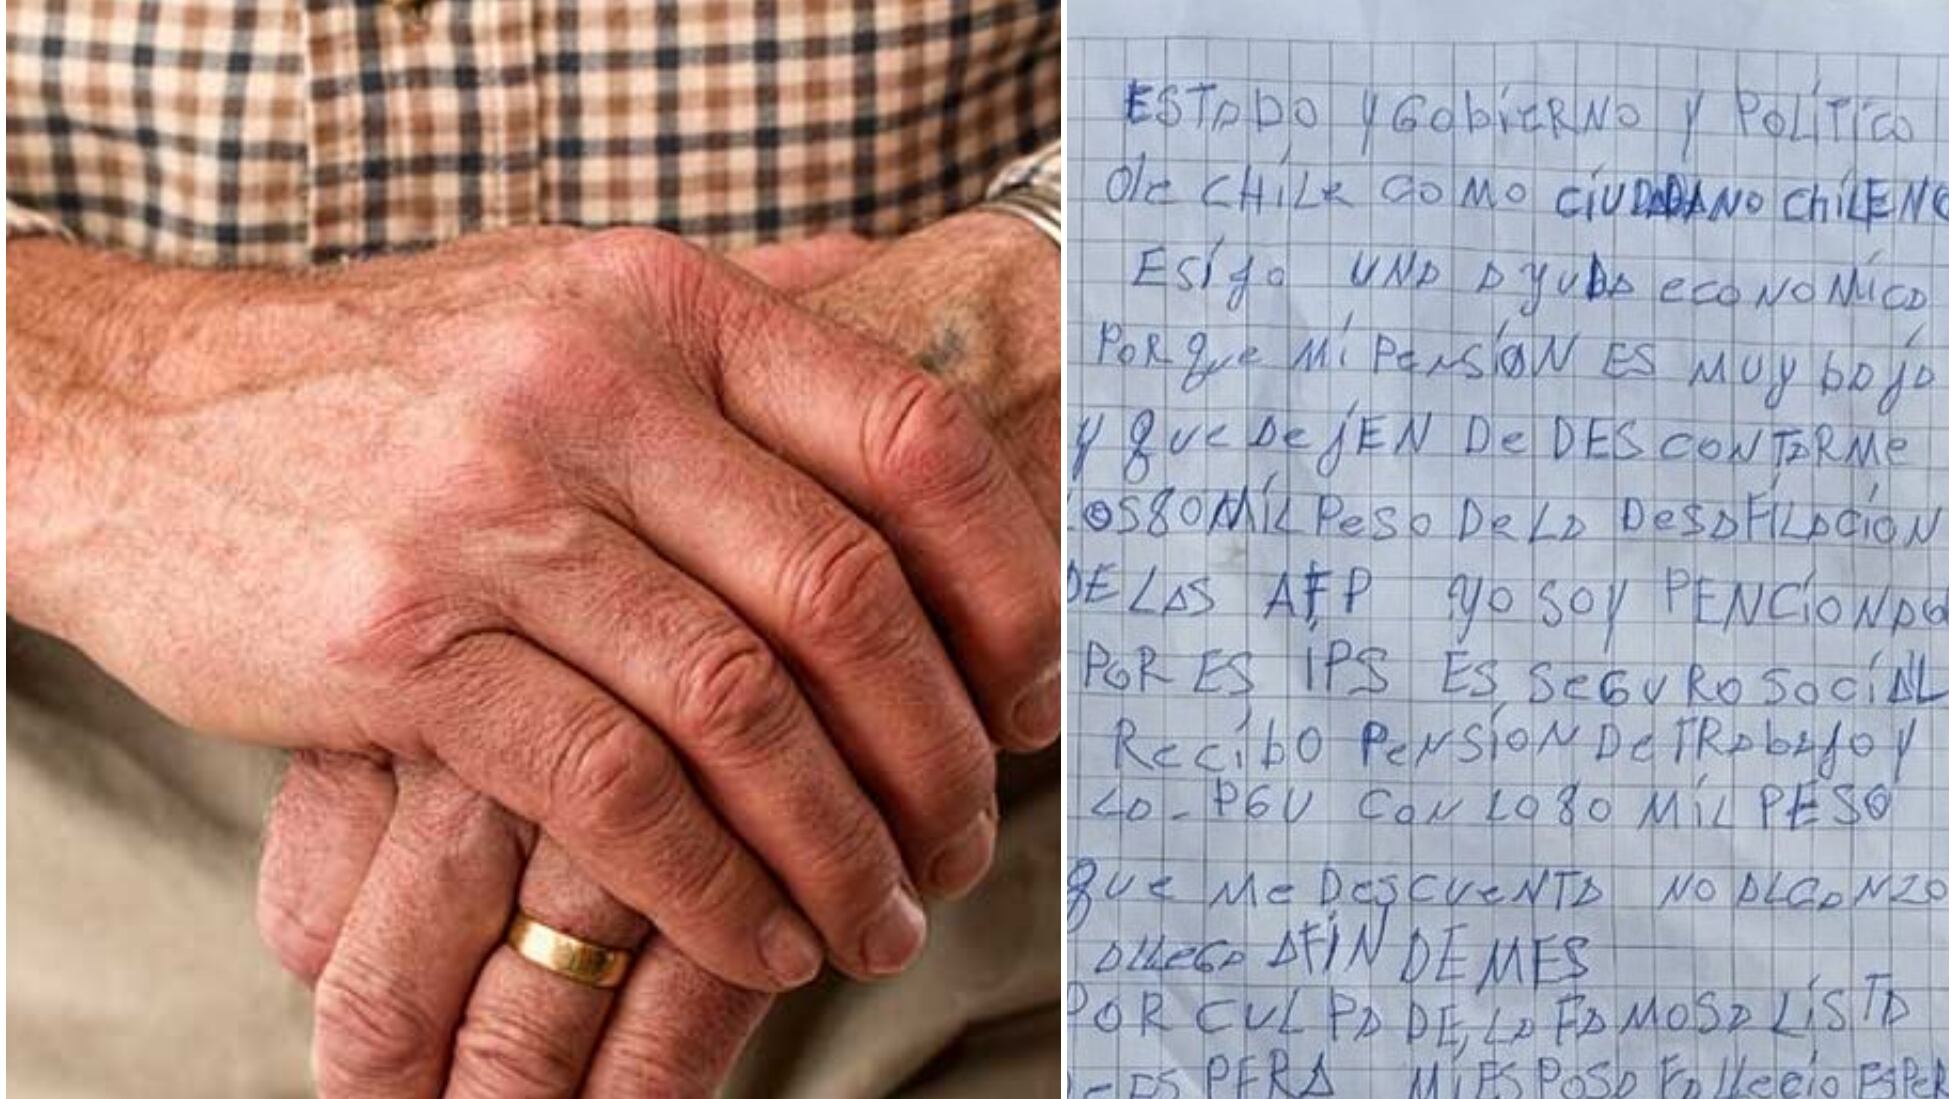 ESTADO y GObiERNO y POLÍTíCO
De CHíLe COMO CíUDADANO ChíLENO
ESíJo UNA AyUDA ecONOMíCA
PORQue Mí PeNSíÓN ES MUy bAjA
y QUE DejEN De DESCONTARMe
LOS 80 MíL PeSO De LA DeSAFíLACíÓN
DE LAS AFP yO SOy PENCíONADO
POR ES íPS ES SeGURO SOCíAL
RecíbO PeNSíÓN De TRAbAJO y
LA - PGU CON LO 80 MíL PESO
QUe Me DeSCUeNTA NO ALCANZO
A LLeGA A FíN DE MES
POR CULPA DE LA FAMOSA LíSTA
ESPERA Mí ESPOSA FALLecíO ESPeR